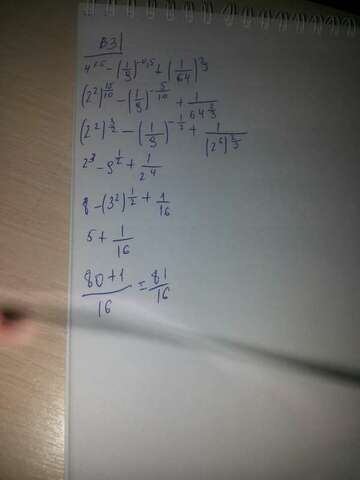 B31
4^{1,5} - (1/9)^{-0,5} + (1/64)^{2/3}
(2²)^{15/10} - (1/9)^{-5/10} + 1/64^{2/3}
(2²)^{3/2} - (1/9)^{-1/2} + 1/(2⁶)^{2/3}
2³ - 9^{1/2} + 1/2⁴
8 - (3²)^{1/2} + 1/16
5 + 1/16
80+1/16 = 81/16